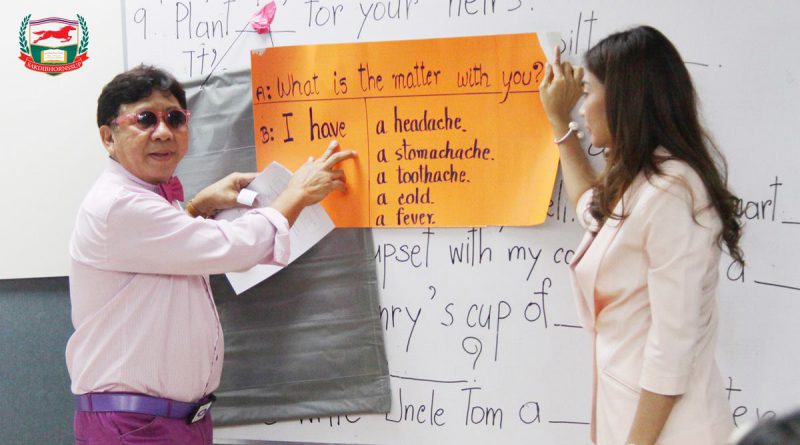 SAKDIBHORNSSUP
9. Plant for your heirs.
It's
A: What is the matter with you?
B: I have
a headache.
a stomachache.
a toothache.
a cold.
a fever.
upset with my
a
cup of
Uncle Tom a